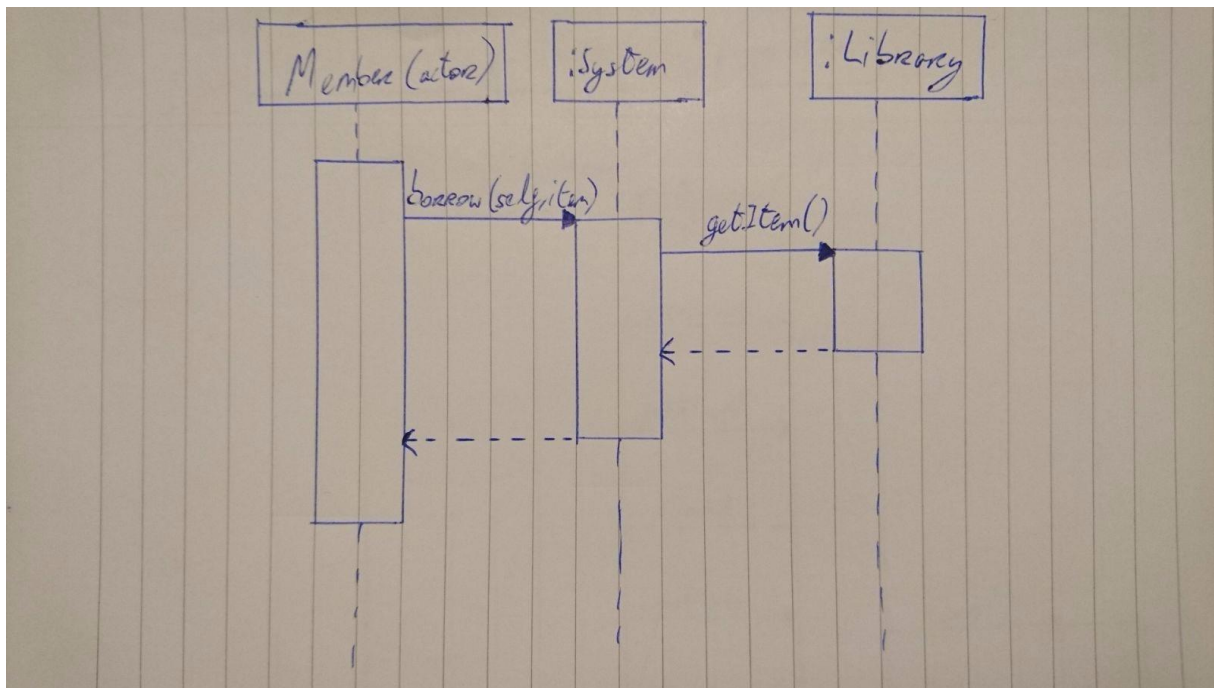 Member (actor)
:System
:Library
borrow(self, item)
getItem()